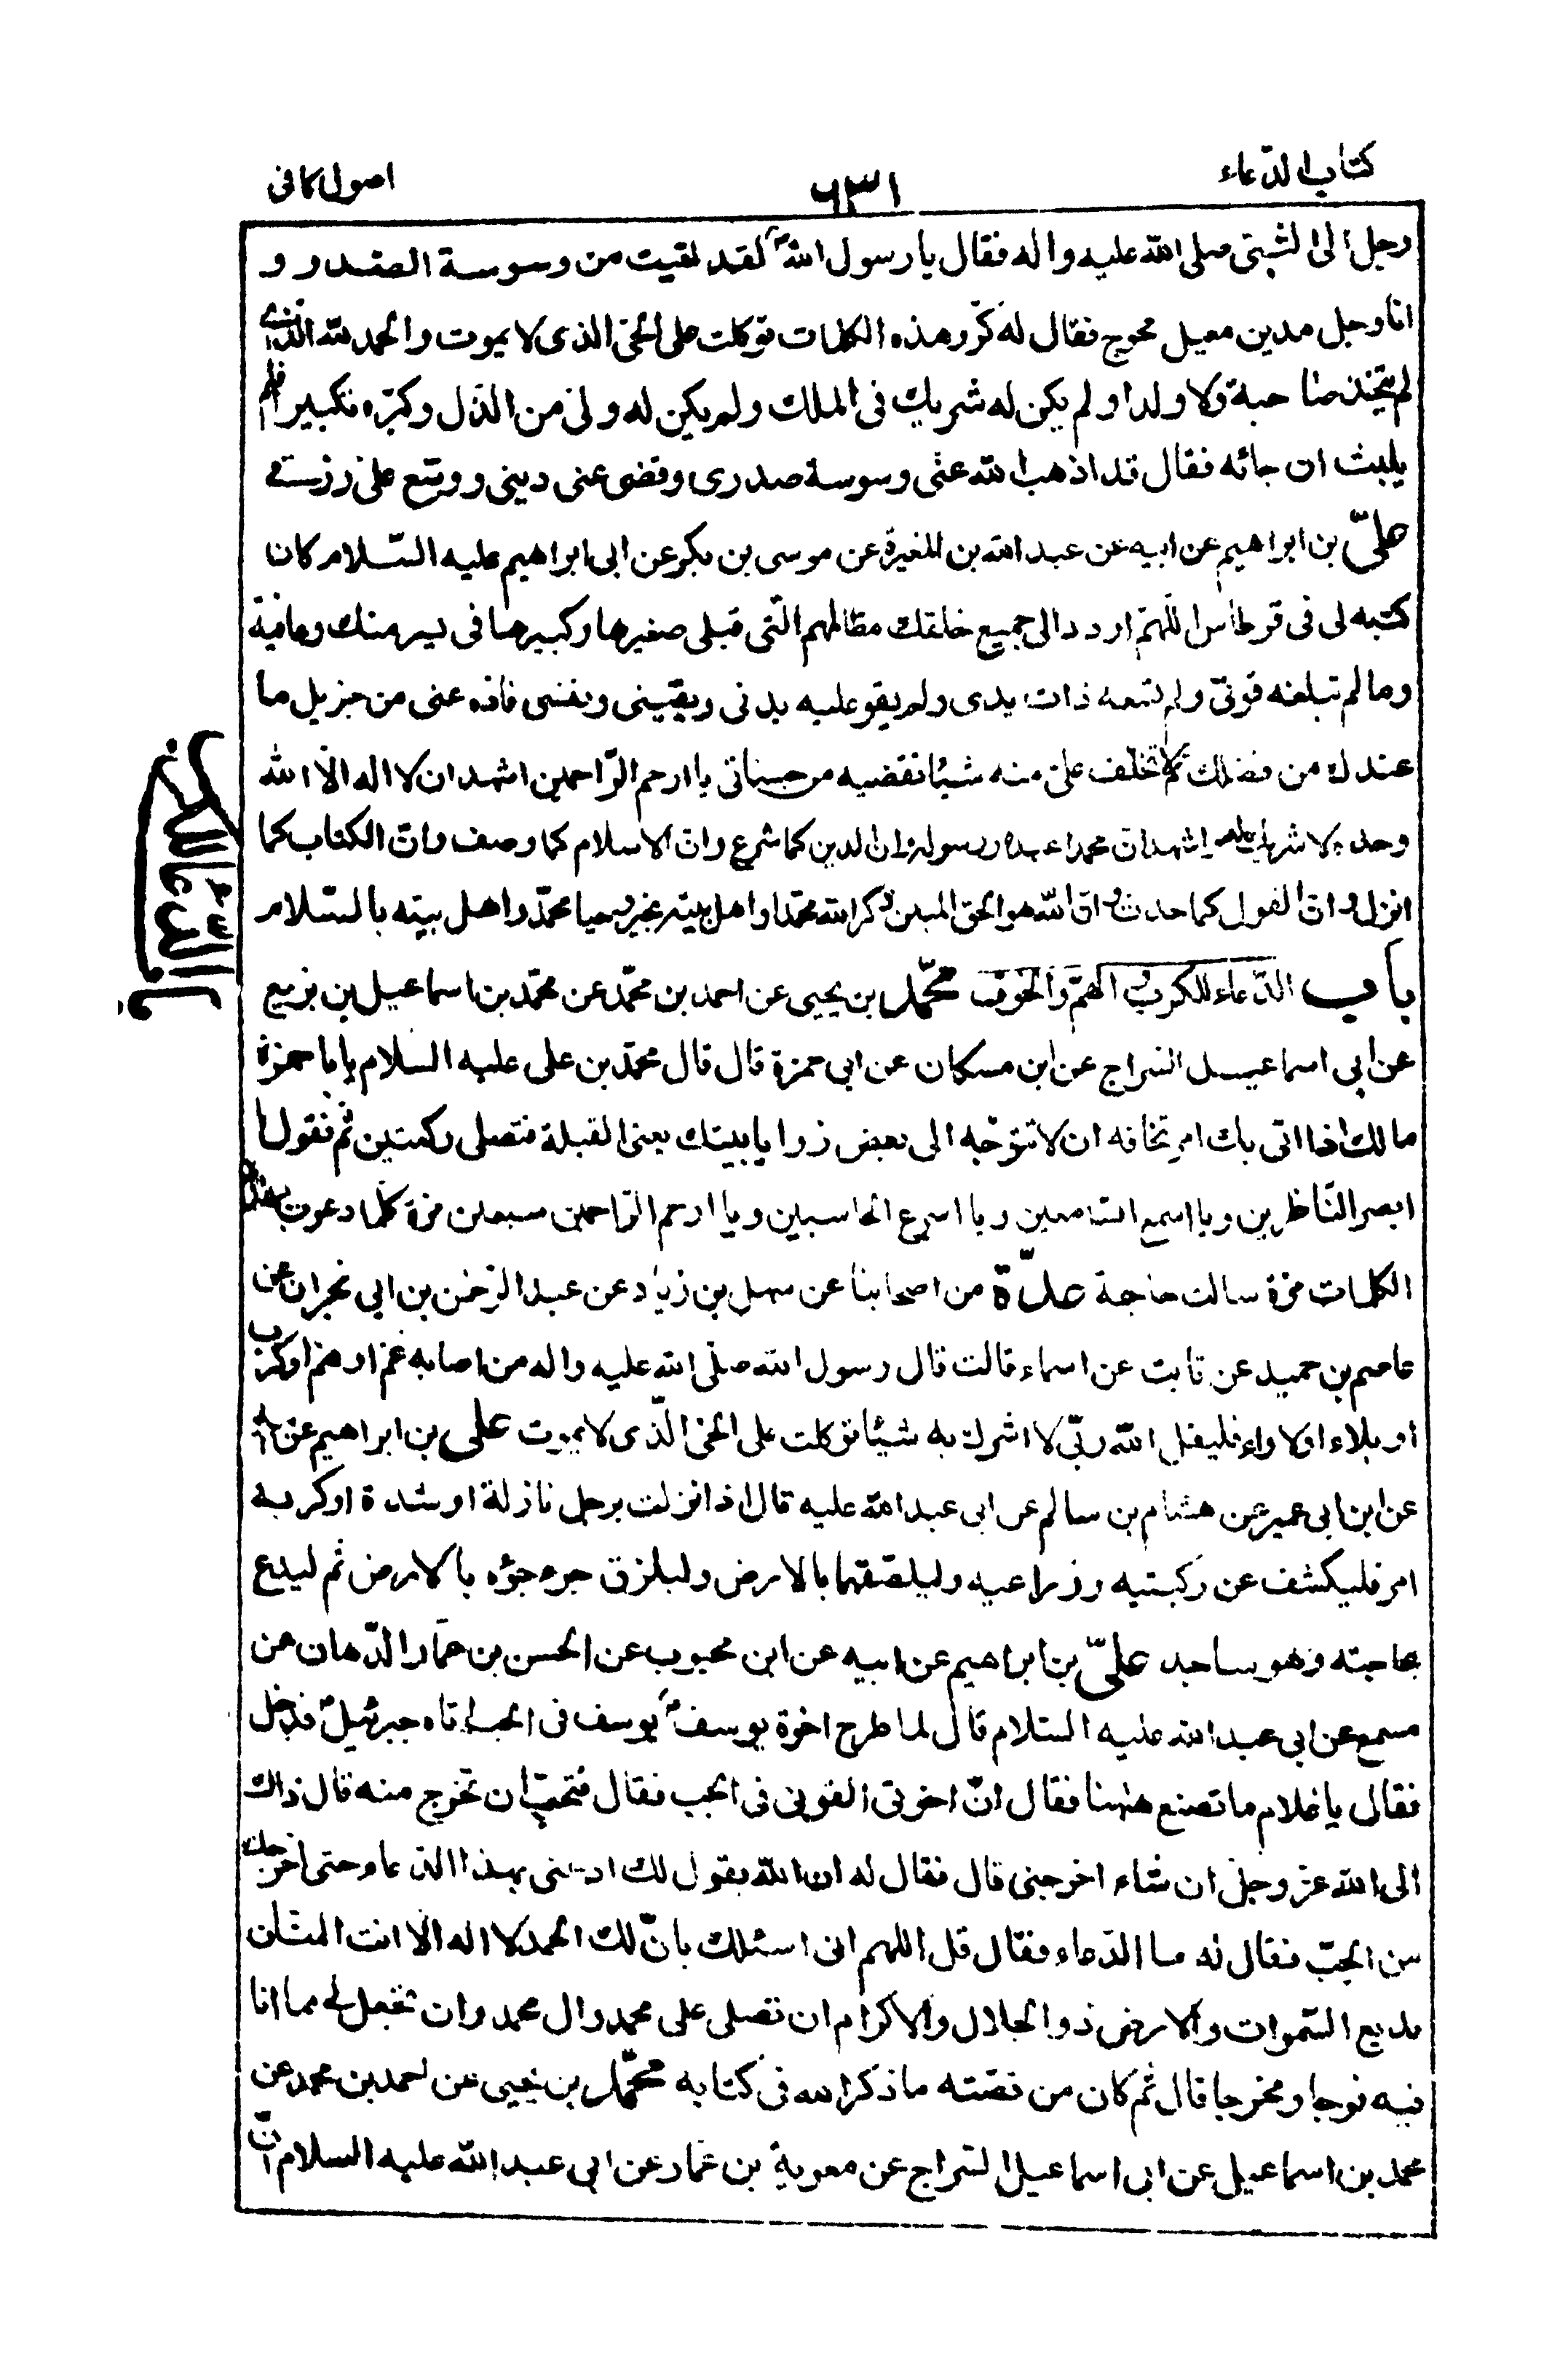 كتاب الدّعاء
٦٣١
اصول كافى
رجل الى النّبىّ صلى الله عليه واله فقال يا رسول الله ص لقد لقيت من وسوسة الصّدر و
انا رجل مدين معيل محوج فقال له كرّر هذه الكلمات توكلت على الحىّ الذى لا يموت والحمد لله الذى
لم يتّخذ صاحبة ولا ولدا ولم يكن له شريك فى الملك ولم يكن له ولىّ من الذّل وكبّره تكبيرا فلم
يلبث ان جائه فقال قد اذهب الله عنّى وسوسة صدرى وقضى عنى دينى ووسّع علىّ رزقى
علىّ بن ابراهيم عن ابيه عن عبد الله بن المغيرة عن موسى بن بكر عن ابى ابراهيم عليه السّلام كان
كتبه لى فى قرطاس اللّهمّ اردد الى جميع خلقك مظالمهم الّتى قبلى صغيرها وكبيرها فى يسر منك وعافية
وما لم تبلغه قوّتى ولم تسعه ذات يدى ولم يقو عليه بدنى ويقينى ونفسى فادّه عنى من جزيل ما
عندك من فضلك ثم لا تخلّف علىّ منه شيئا تقضيه من حسناتى يا ارحم الرّاحمين اشهد ان لا اله الاّ الله
وحده لا شريك له واشهد انّ محمدا عبده ورسوله وان الدين كما شرع وانّ الاسلام كما وصف وانّ الكتاب كما
انزل وانّ القول كما حدث وانّ الله هو الحق المبين ذكر الله محمّدا واهل بيته بخير وحيا محمّد واهل بيته بالسّلام
باب الدّعاء للكرب و الهمّ والخوف محمّد بن يحيى عن احمد بن محمّد عن محمّد بن اسماعيل بن بزيع
عن ابى اسماعيل السّراج عن ابن مسكان عن ابى حمزة قال قال محمّد بن على عليه السلام يا ابا حمزة
ما لك اذا اتى بك امر تخافه ان لا تتوجّه الى بعض زوايا بيتك يعنى القبلة فتصلى ركعتين ثمّ تقول يا
ابصر النّاظرين ويا اسمع السّامعين ويا اسرع الحاسبين ويا ارحم الرّاحمين سبعين مرّة كلّما دعوت بهذه
الكلمات مرّة سالت حاجة عدّة من اصحابنا عن سهل بن زياد عن عبد الرّحمن بن ابى نجران عن
عاصم بن حميد عن ثابت عن اسماء قالت قال رسول الله صلّى الله عليه واله من اصابه غمّ او همّ او كرب
او بلاء او لاواء فليقل الله ربّى لا اشرك به شيئا توكلت على الحىّ الّذى لا يموت على بن ابراهيم عن ابيه
عن ابن ابى عمير عن هشام بن سالم عن ابى عبد الله عليه قال اذا نزلت برجل نازلة او شدة او كربه
امر فليكشف عن ركبتيه وذراعيه وليلصّقهما بالارض وليلزق جوءجؤه بالارض ثم ليدع
بحاجته وهو ساجد علىّ بن ابراهيم عن ابيه عن ابن محبوب عن الحسن بن عمّار الدّهان عن
مسمع عن ابى عبد الله عليه السّلام قال لما طرح اخوة يوسف ع يوسف فى الجب اتاه جبرئيل ع فدخل
فقال يا غلام ما تصنع هٰهنا فقال انّ اخوتى القونى فى الجب فقال فتحبّ ان تخرج منه قال ذاك
الى الله عزّ وجلّ ان شاء اخرجنى قال فقال له ان الله يقول لك ادعنى بهذا الدّعاء حتى اخرجك
من الجبّ فقال له ما الدّعاء فقال قل اللهم انى اسئلك بانّ لك الحمد لا اله الاّ انت المنّان
بديع السّموات والارض ذو الجلال والاكرام ان تصلى على محمد وال محمد وان تجعل لى مما انا
فيه فرجا ومخرجا قال ثم كان من قصّته ما ذكر الله فى كتابه محمّد بن يحيى عن احمد بن محمد عن
محمد بن اسماعيل عن ابى اسماعيل السّراج عن معوية بن عمّار عن ابى عبد الله عليه السلام انّ
باب الدّعاء للكرب